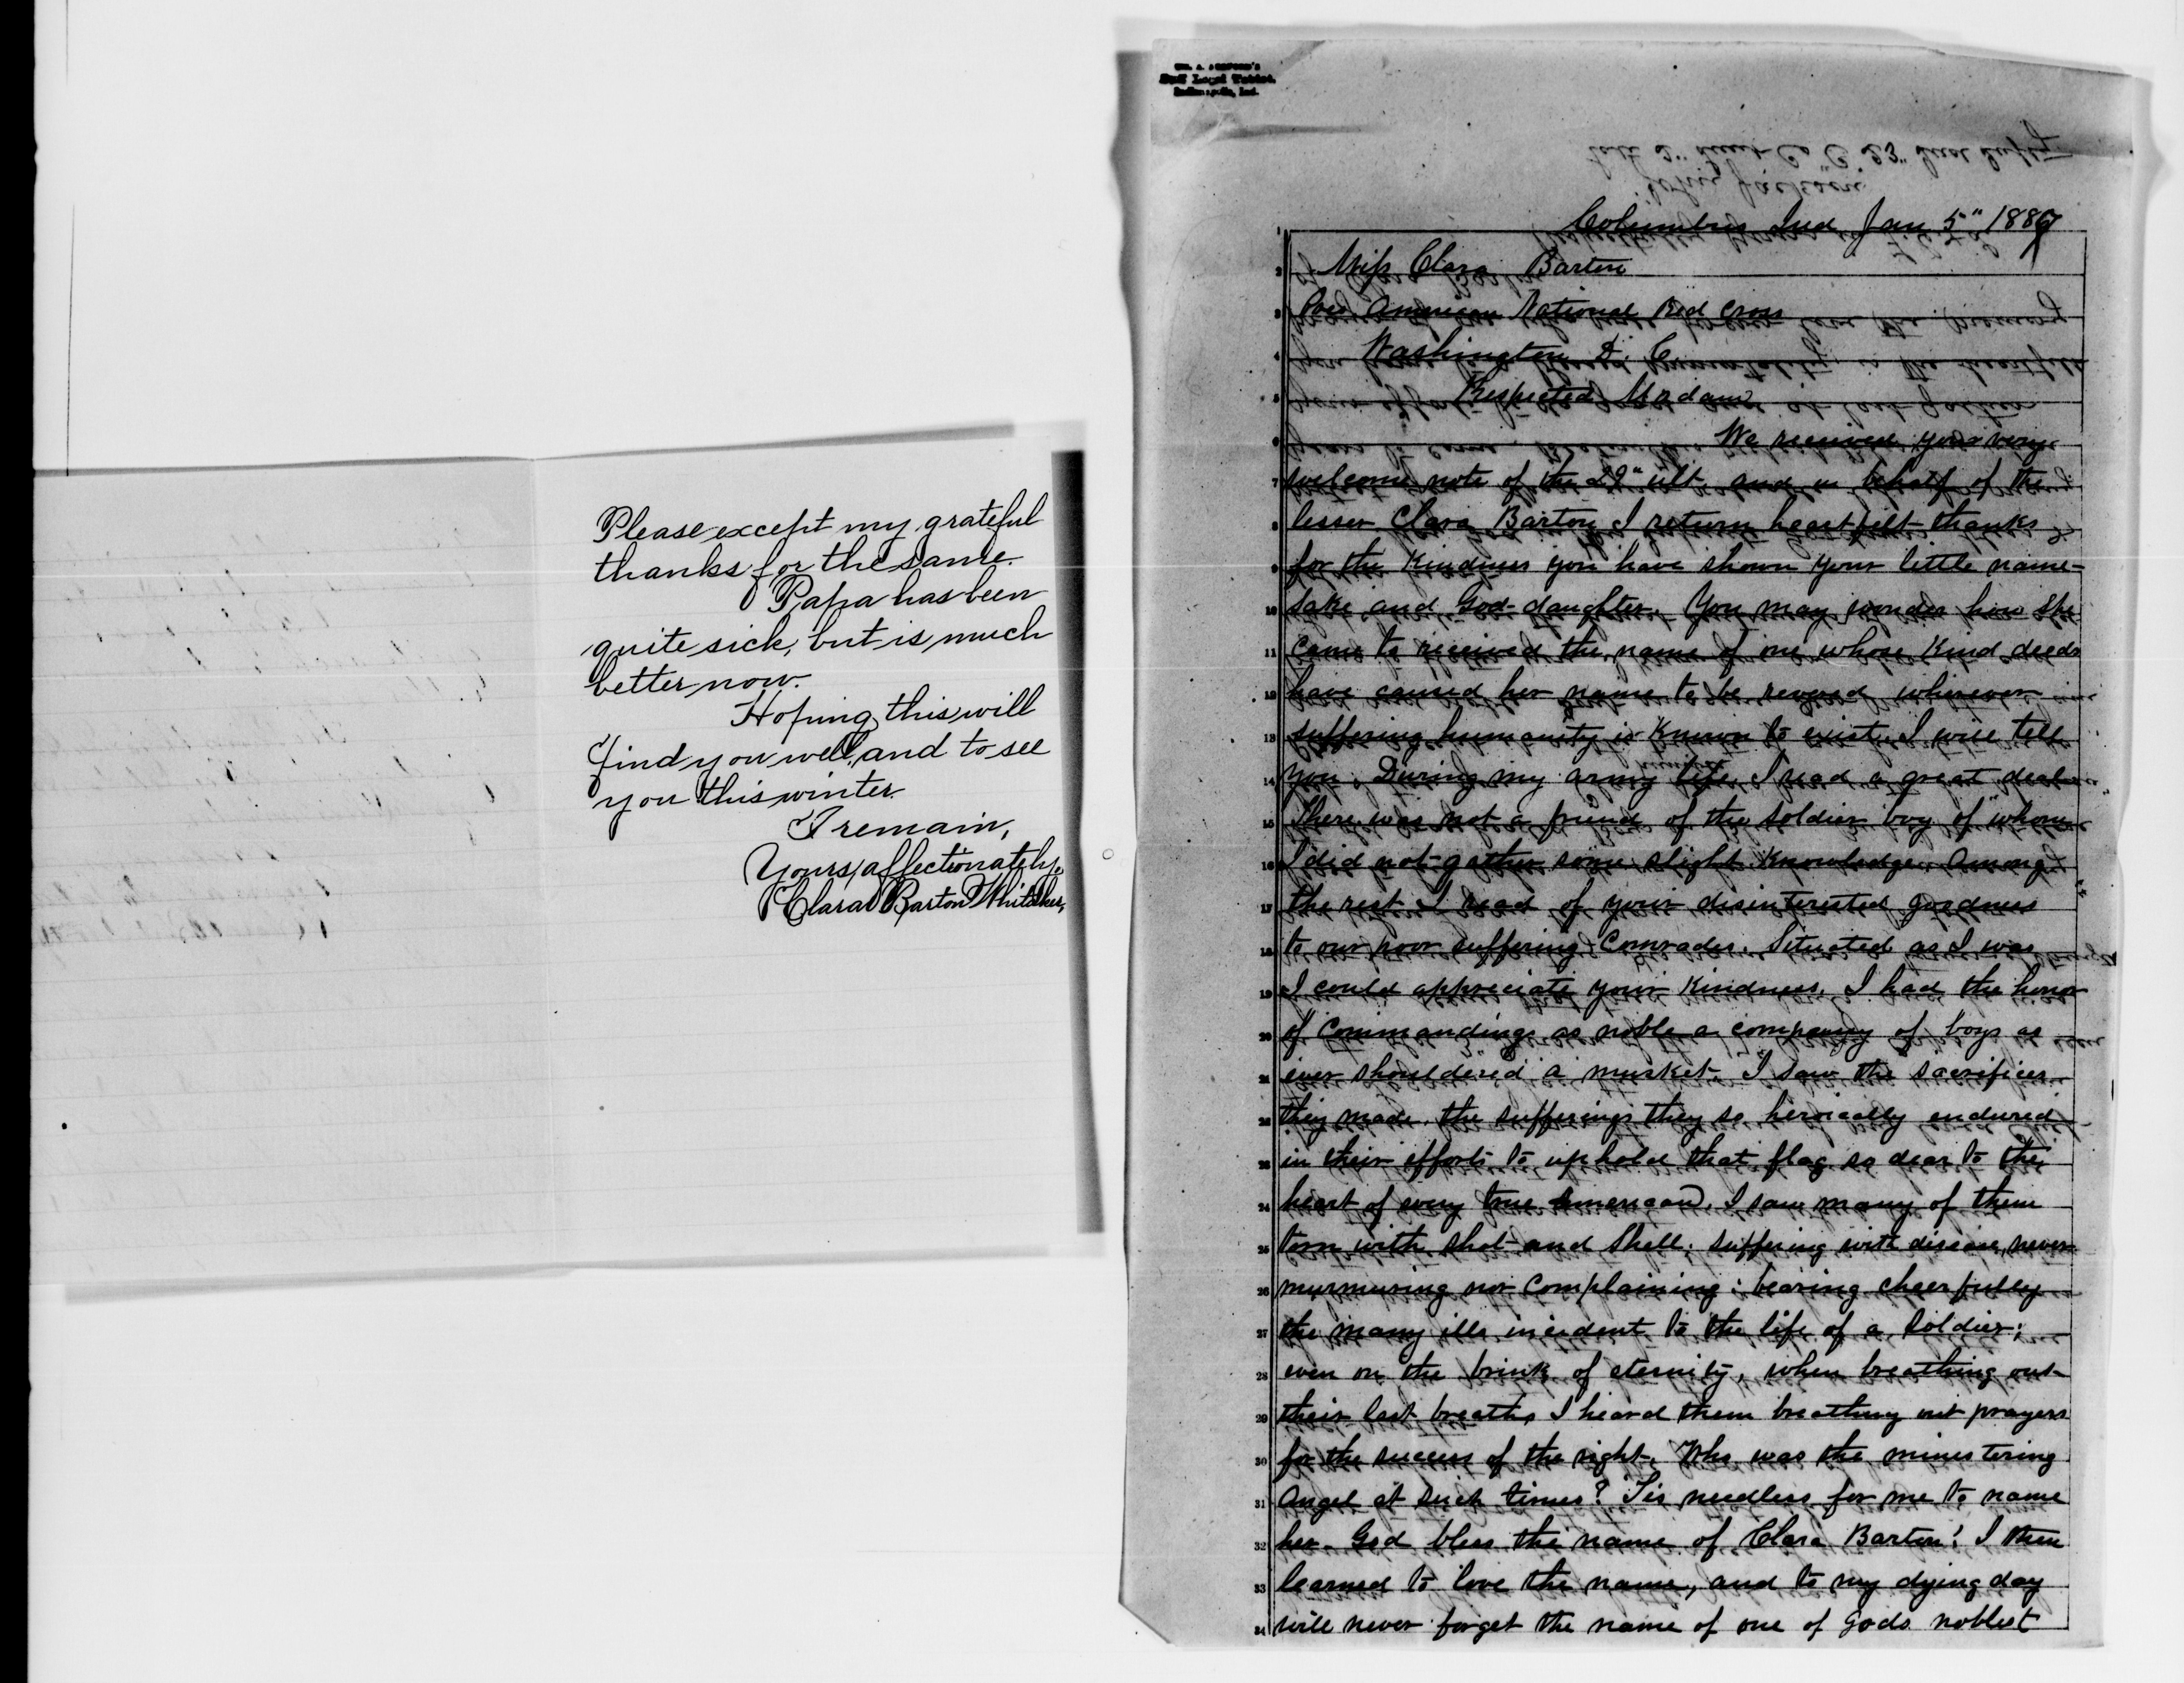 Please except my grateful
thanks for the same.
Papa has been
quite sick, but is much
better now.
Hoping this will
find you well, and to see
you this winter.
I remain,
Yours affectionately,
Clara Barton Whitaker,
Indianapolis, Ind.
Columbus Ind Jan 5" 1887
Miss Clara Barton
Pres American National Red Cross
Washington D. C.
Respected Madam
We received your very
welcome note of the 29" ult. and in behalf of the
lesser Clara Barton I return heartfelt thanks
for the kindness you have shown your little name-
sake and God-daughter. You may wonder how she
came to received the name of one whose kind deeds
have caused her name to be revered wherever
suffering humanity is known to exist. I will tell
you. During my army life I read a great deal
There was not a friend of the soldier boy of whom
I did not gather some slight knowledge. Among
the rest I read of your disinterested goodness
to our poor suffering Comrades. Situated as I was
I could appreciate your kindness. I had the honor
of Commanding as noble a company of boys as
ever shouldered a musket. I saw the sacrifices
they made, the sufferings they so heroically endured
in their efforts to uphold that flag so dear to the
heart of every true American. I saw many of them
torn with shot and shell; suffering with disease, never
murmuring nor complaining; bearing cheerfully
the many ills incident to the life of a soldier;
even on the brink of eternity, when breathing out
their last breaths I heard them breathing out prayers
for the success of the right. Who was the ministering
Angel at such times? Tis needless for me to name
her. God bless the name of Clara Barton! I then
learned to love the name, and to my dying day
will never forget the name of one of Gods noblest